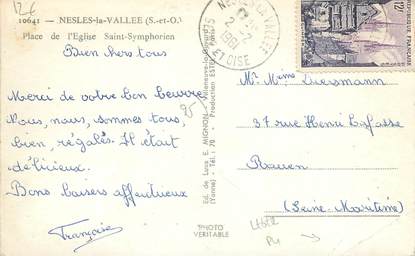 12f
10641 — NESLES-la-VALLEE (S.-et-O.)
Place de l'Eglise Saint-Symphorien
Bien chers tous
Merci de votre bon beurre
Nous, nous, sommes tous,
bien, régalés. Il était
délicieux.
Bons baisers affectueux
Françoise
95
Ed. de Luxe E. MIGNON - Villeneuve-la-Guyard
(Yonne) - Tél. : 70 - Production ESTEL
PHOTO
VERITABLE
NESLES-LA-VALLEE
2-2
1961
SEINE ET OISE
12F
REPUBLIQUE FRANÇAISE
Mr Mme
37 rue Henri Lafosse
Rouen
(Seine-Maritime)